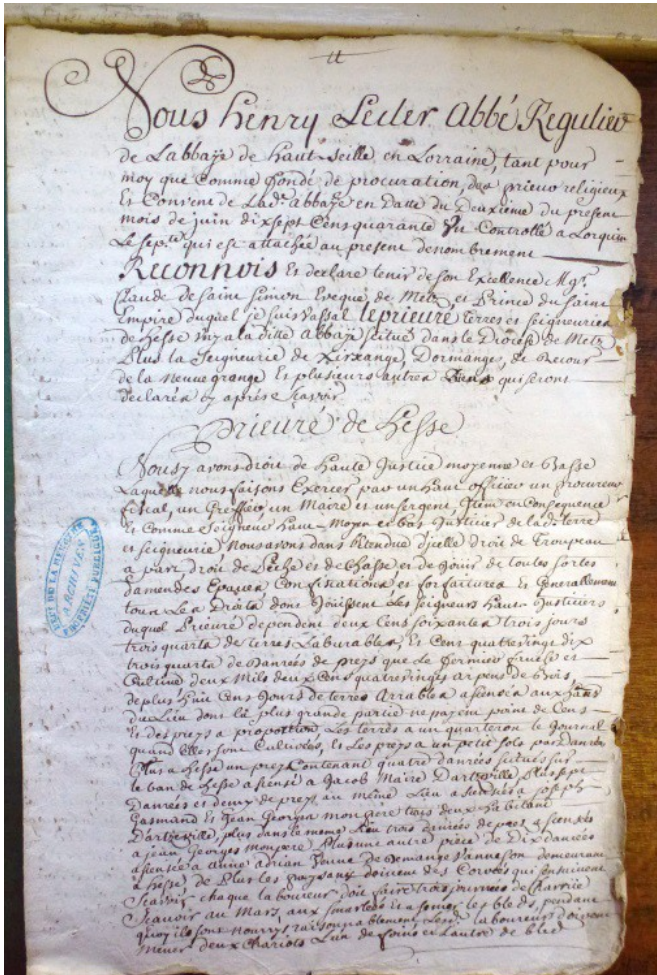 Nous henry Lecler Abbé Regulier
de Labbaÿe de haut-seille en Lorraine, tant pour
moy que Comme fondé de procuration des prieur religieux
Et Convent de Lad. abbaÿe en datte du Deuxiéme du present
mois de juin dix sept Cens quarante Controllé a Lorquin
Le sept. qui est attachée au present denombrement
Reconnois Et declare tenir de son Excellence Mgr.
Claude de saint Simon Eveque de Metz et Prince du saint
Empire duquel je suis vassal le prieuré terres et seigneuries
de hesse uny a la ditte abbaÿe scitué dans le Diocese de Metz
Plus la Seigneurie de Xirxange, Dormanges, Et Recour
de la neuve grange Et plusieurs autres Biens qui seront
declarés cy aprés scavoir
Prieuré de hesse
Nous y avons droit de haute justice moyenne et Basse
Laquelle nous faisons Exercer par un haut officier un procureur
fiscal, un Greffier, un Maire et un sergent, Item en Consequence
Et Comme Seigneur haut-Moyen et bas justicier de lad. terre
et seigneurie nous avons dans l'etendue d'icelle droit de Troupeau
a part, droit de Pêche et de Chasse et de jouir de toutes sortes
d'amendes Epaves Confiscations et forfaitures Et Generallement
tous Les Droits dont Jouissent Les seigneurs hauts Justiciers
duquel Prieuré dependent deux Cens soixantes trois jours
trois quarts de terres Labourables, Et Cens quatre vingt dix
trois quarts de Danrées de preys que Le fermier et
Cultive deux Mils deux Cens quatre vingts arpens de Bois,
de plus huit Cens jours de terres Arrables aux
du Lieu dont la plus grande partie ne payent point de Cens
Et des preys a proportion Les terres a un quarteron le Journal
quand Elles sont Cultivées, Et Les preys a un petit sols par Danrée
Plus a hesse un prey Contenant quatre danrées scitués sur
le ban de hesse a Jacob Maire Plus sept
Danrées et demy de prey au même Lieu a Joseph
Gasmand Et Jean deux habitant
plus dans le même Lieu trois danrées de prey
a jean Georges Plus une autre piece de Dix danrées
a anne adrian de demange demeurant
a hesse, de Plus les doivent des Corvées qui s'ensuivent
Scavoir, chaque laboureur doit faire trois journées de Charrue
Scavoir au Mars, aux Et a semer les bleds, pendant
quoy ils sont nourrys raisonnablement, Lesd. laboureurs doivent
mener deux Chariots L'un de foin et L'autre de bled
DEPT DE LA MEURTHE
ARCHIVES
PROPRIÉTÉ PUBLIQUE